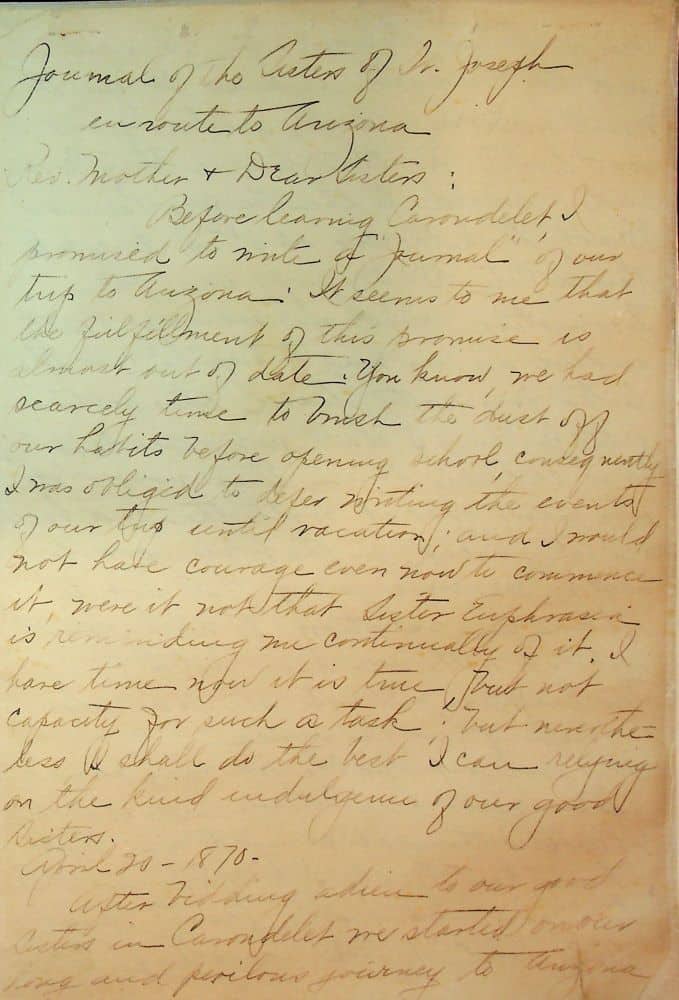 Journal of the Sisters of St. Joseph
en route to Arizona
Rev. Mother & Dear Sisters :
Before leaving Carondelet, I
promised to write a "Journal" of our
trip to Arizona. It seems to me that
the fulfillment of this promise is
almost out of date. You know, we had
scarcely time to brush the dust off
our habits before opening school, consequently
I was obliged to defer writing the events
of our trip until vacation; and I would
not have courage even now to commence
it, were it not that Sister Euphrasia
is reminding me continually of it. I
have time now it is true, but not
capacity for such a task; but neverthe-
less I shall do the best I can relying
on the kind indulgence of our good
Sisters.
April 20 - 1870 -
After bidding adieu to our good
Sisters in Carondelet we started on our
long and perilous journey to Arizona